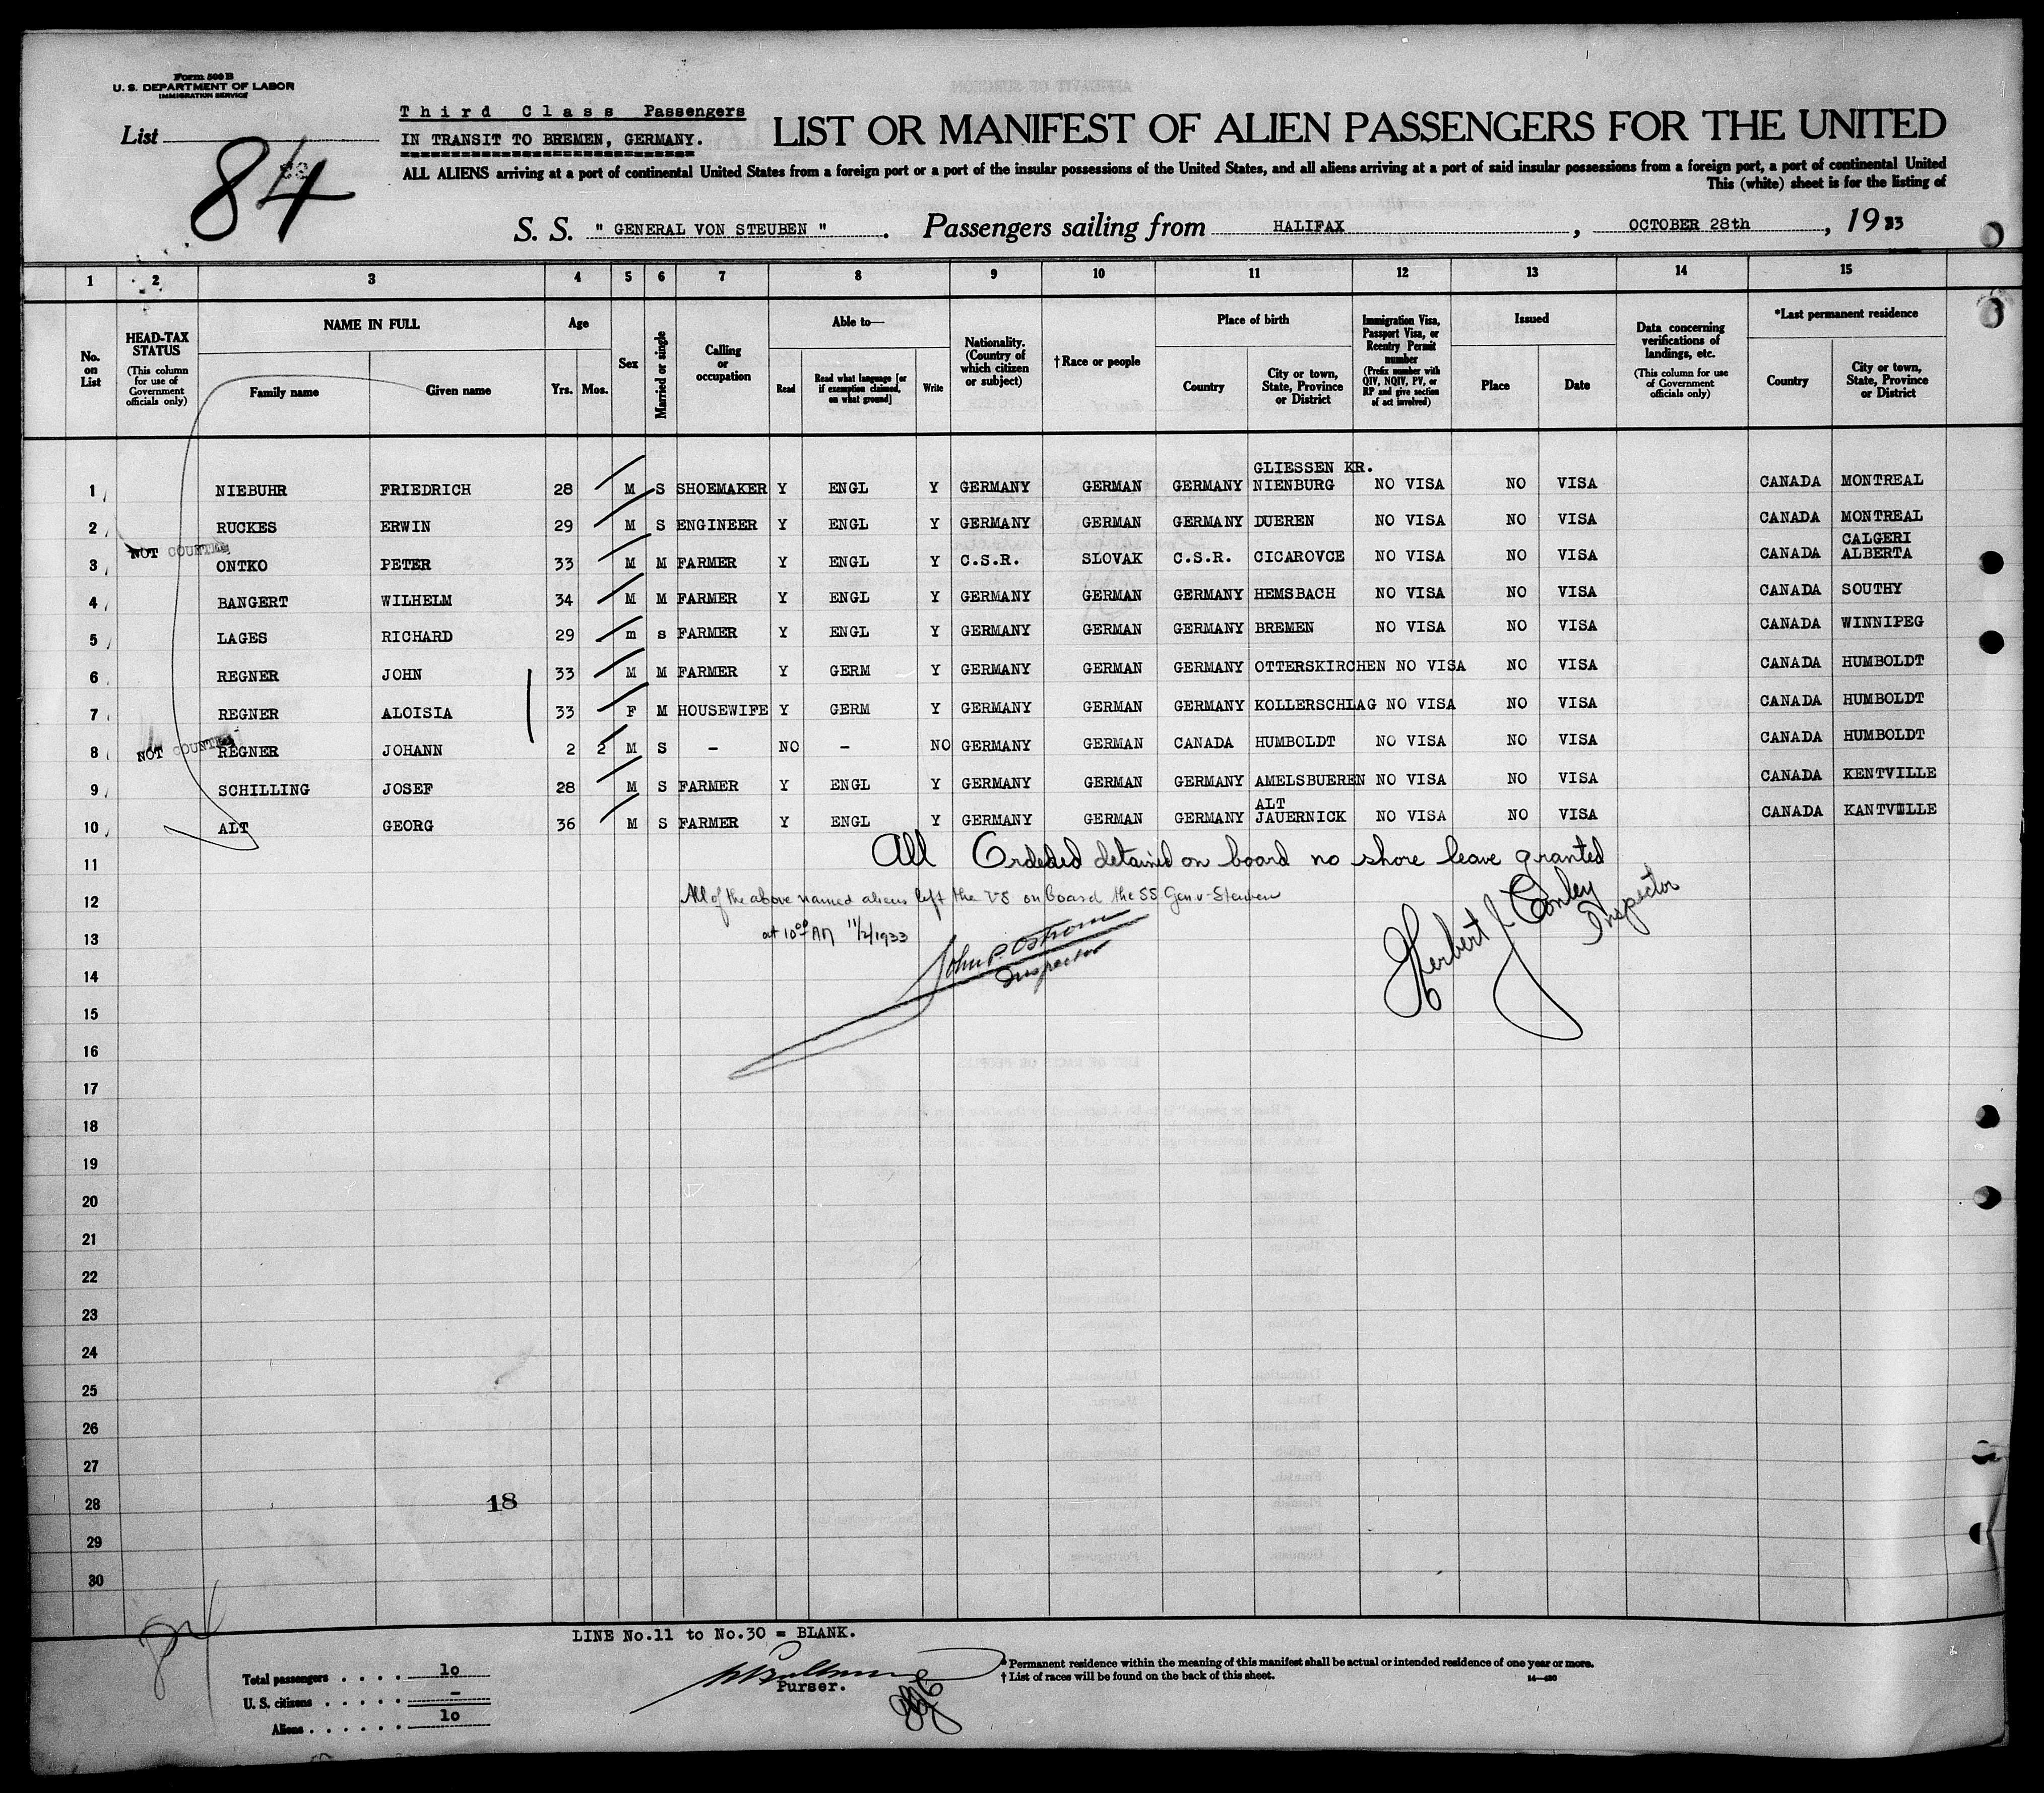 Form 500 B
U. S. DEPARTMENT OF LABOR
IMMIGRATION SERVICE
List
84
Third Class Passengers
IN TRANSIT TO BREMEN, GERMANY.
LIST OR MANIFEST OF ALIEN PASSENGERS FOR THE UNITED
ALL ALIENS arriving at a port of continental United States from a foreign port or a port of the insular possessions of the United States, and all aliens arriving at a port of said insular possessions from a foreign port, a port of continental United
This (white) sheet is for the listing of
S. S. " GENERAL VON STEUBEN " . Passengers sailing from HALIFAX , OCTOBER 28th , 1933
1 2 3 4 5 6 7 8 9 10 11 12 13 14 15
No. on List
HEAD-TAX STATUS (This column for use of Government officials only)
NAME IN FULL
Family name Given name
Age
Yrs. Mos.
Sex
Married or single
Calling or occupation
Able to—
Read Read what language [or if exemption claimed, on what ground] Write
Nationality. (Country of which citizen or subject)
†Race or people
Place of birth
Country City or town, State, Province or District
Immigration Visa, Passport Visa, or Reentry Permit number (Prefix number with QIV, NQIV, PV, or RP and give section of act involved)
Issued
Place Date
Data concerning verifications of landings, etc. (This column for use of Government officials only)
*Last permanent residence
Country City or town, State, Province or District
GLIESSEN KR.
1 NIEBUHR FRIEDRICH 28 M S SHOEMAKER Y ENGL Y GERMANY GERMAN GERMANY NIENBURG NO VISA NO VISA CANADA MONTREAL
2 RUCKES ERWIN 29 M S ENGINEER Y ENGL Y GERMANY GERMAN GERMANY DUEREN NO VISA NO VISA CANADA MONTREAL
NOT COUNTED
CALGERI
3 ONTKO PETER 33 M M FARMER Y ENGL Y C.S.R. SLOVAK C.S.R. CICAROVCE NO VISA NO VISA CANADA ALBERTA
4 BANGERT WILHELM 34 M M FARMER Y ENGL Y GERMANY GERMAN GERMANY HEMSBACH NO VISA NO VISA CANADA SOUTHY
5 LAGES RICHARD 29 m s FARMER Y ENGL Y GERMANY GERMAN GERMANY BREMEN NO VISA NO VISA CANADA WINNIPEG
6 REGNER JOHN 33 M M FARMER Y GERM Y GERMANY GERMAN GERMANY OTTERSKIRCHEN NO VISA NO VISA CANADA HUMBOLDT
7 REGNER ALOISIA 33 F M HOUSEWIFE Y GERM Y GERMANY GERMAN GERMANY KOLLERSCHLAG NO VISA NO VISA CANADA HUMBOLDT
8 NOT COUNTED REGNER JOHANN 2 2 M S - NO - NO GERMANY GERMAN CANADA HUMBOLDT NO VISA NO VISA CANADA HUMBOLDT
9 SCHILLING JOSEF 28 M S FARMER Y ENGL Y GERMANY GERMAN GERMANY AMELSBUEREN NO VISA NO VISA CANADA KENTVILLE
ALT
10 ALT GEORG 36 M S FARMER Y ENGL Y GERMANY GERMAN GERMANY JAUERNICK NO VISA NO VISA CANADA KANTVILLE
11 All Ordeded detained on board no shore leave granted
12 All of the above named aliens left the US on board the SS Gen v-Steuben
Herbert J. Conley Inspector
13 at 10 00 AM 11/2/1933
John P. Ostrom
14 Inspector
15
16
17
18
19
20
21
22
23
24
25
26
27
28 18
29
30
84
LINE No.11 to No.30 = BLANK.
Total passengers . . . . 10
U. S. citizens . . . . . -
Aliens . . . . . . 10
Purser.
*Permanent residence within the meaning of this manifest shall be actual or intended residence of one year or more.
†List of races will be found on the back of this sheet.
14—480